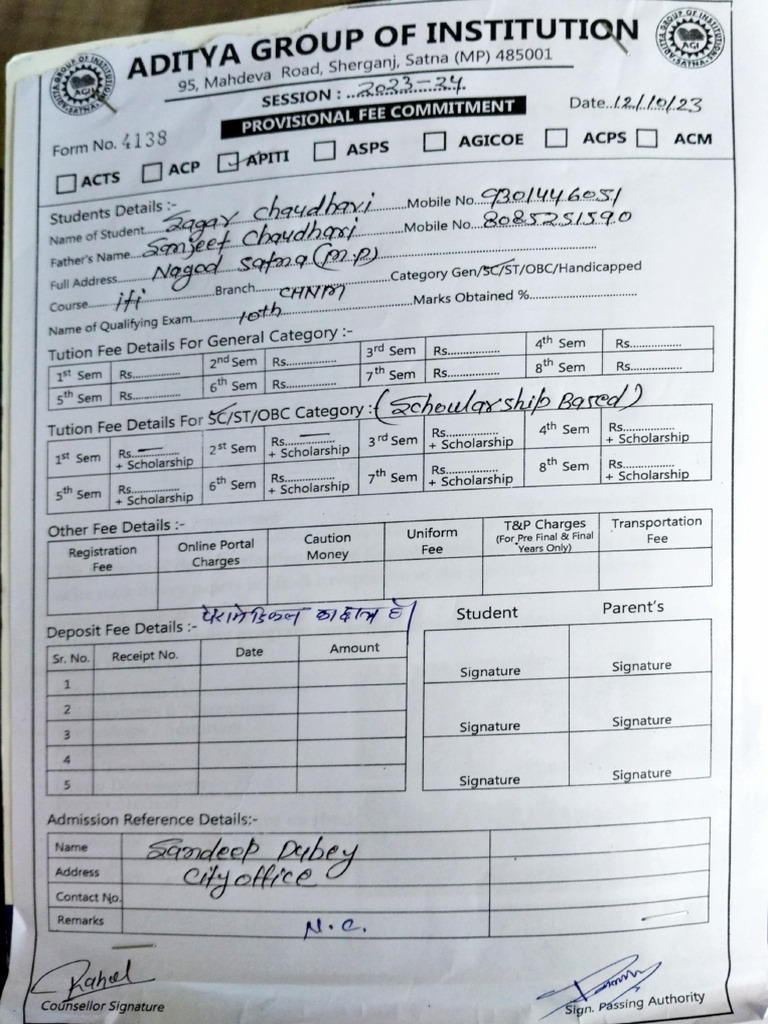 ADITYA GROUP OF INSTITUTION
95, Mahdeva Road, Sherganj, Satna (MP) 485001
SESSION : 2023-24
PROVISIONAL FEE COMMITMENT
Date 12/10/23
Form No. 4138
ACTS ACP APITI ASPS AGICOE ACPS ACM
Students Details :-
Name of Student Sagar Chaudhari Mobile No. 9301446051
Father's Name Sanjeet Chaudhari Mobile No. 8085251590
Full Address Nagod Satna (M.P)
Course iti Branch CHNM Category Gen/SC/ST/OBC/Handicapped
Name of Qualifying Exam 10th Marks Obtained %
Tution Fee Details For General Category :-
1st Sem Rs. 2nd Sem Rs. 3rd Sem Rs. 4th Sem Rs.
5th Sem Rs. 6th Sem Rs. 7th Sem Rs. 8th Sem Rs.
Tution Fee Details For SC/ST/OBC Category : (Schoularship Based)
1st Sem Rs. — + Scholarship 2st Sem Rs. — + Scholarship 3rd Sem Rs. + Scholarship 4th Sem Rs. + Scholarship
5th Sem Rs. + Scholarship 6th Sem Rs. + Scholarship 7th Sem Rs. + Scholarship 8th Sem Rs. + Scholarship
Other Fee Details :-
Registration Fee Online Portal Charges Caution Money Uniform Fee T&P Charges (For Pre Final & Final Years Only) Transportation Fee
पैरामेडिकल का छात्र है।
Deposit Fee Details :-
Student Parent's
Sr. No. Receipt No. Date Amount
1
Signature Signature
2
3
Signature Signature
4
5
Signature Signature
Admission Reference Details:-
Name Sandeep Dubey
Address City office
Contact No.
Remarks N.C.
Rahul
Counsellor Signature
Sign. Passing Authority